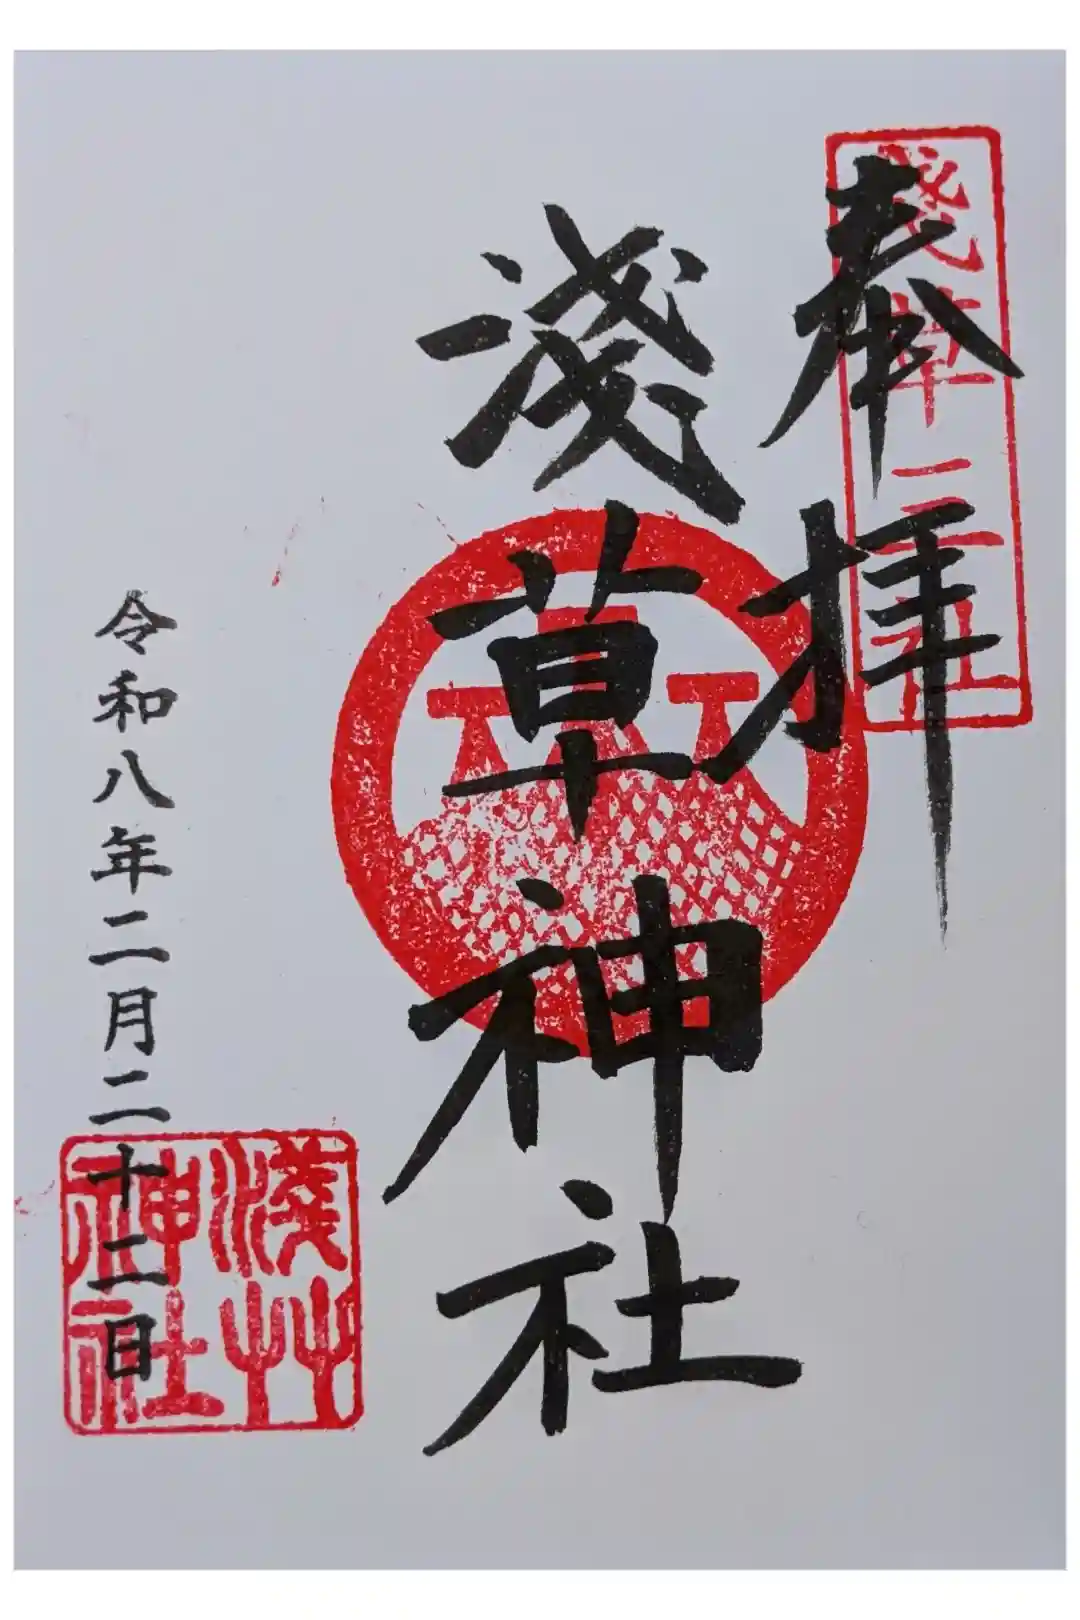 奉拝
淺草三社
淺草神社
令和八年二月二十二日
淺草
神社